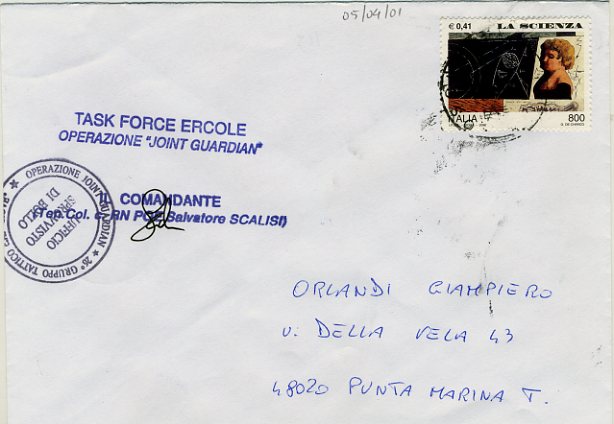 05/04/01
€ 0,41 LA SCIENZA
ITALIA 800
TASK FORCE ERCOLE
OPERAZIONE "JOINT GUARDIAN"
OPERAZIONE JOINT GUARDIAN ★ 26° GRUPPO TATTICO
UFFICIO
SPROVVISTO
DI BOLLO
IL COMANDANTE
(Ten.Col. Salvatore SCALISI)
ORLANDI GIAMPIERO
V. DELLA VELA 43
48020 PUNTA MARINA T.